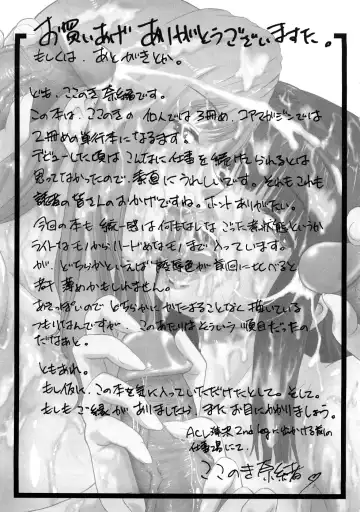 お買いあげ ありがとうございますた。
もしくは、あとがきとか。
ども、ここのき奈緒です。
この本は、ここのきの 個人では 3冊め、コアマガジンでは
2冊めの単行本になります。
デビューした頃は こんなに仕事を続けてられるとは
思ってなかったので、素直にうれしいです。それもこれも
読者の皆さんのおかげですね。ホントありがたい。
今回の本も 統一感は何もなしな ごった煮状態というか
ライトなモノからハードめなモノまで入っています。
が、どちらかといえば 陵辱色が前回に比べると
若干 薄めかもしれません。
あまっぽいので どちらかにかたよることなく描いている
つもりなんですが、このあたりはどういう順目だったの
だなあと。
ともあれ。
もし仮に、この本を気に入っていただけたとして。そして。
もしもご縁がありましたら、またお目にかかりましょう。
ACL 決決 2nd legに出かける前の
仕事場にて。
ここのき奈緒